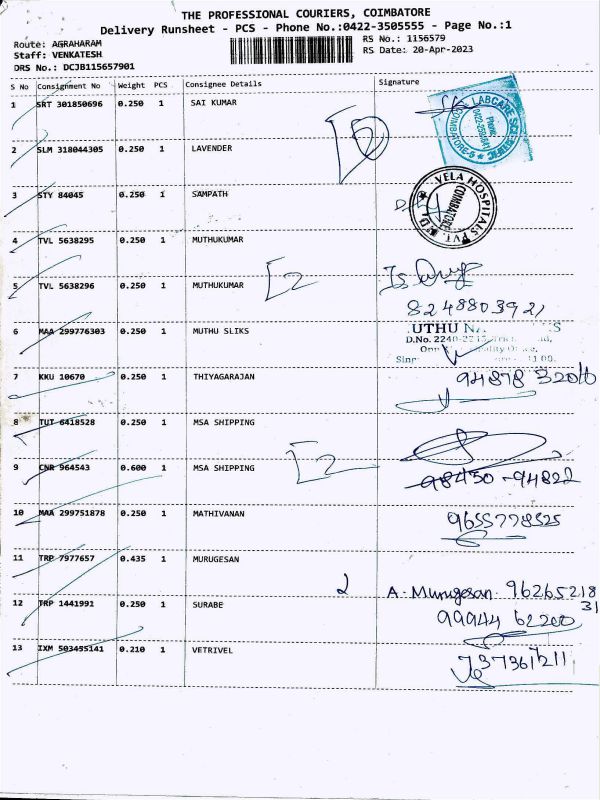 THE PROFESSIONAL COURIERS, COIMBATORE
Delivery Runsheet - PCS - Phone No.:0422-3505555 - Page No.:1
Route: AGRAHARAM
Staff: VENKATESH
DRS No.: DCJB115657901
RS No.: 1156579
RS Date: 20-Apr-2023
S No Consignment No Weight PCS Consignee Details Signature
1 SRT 301850696 0.250 1 SAI KUMAR
LABCARE
COIMBATORE-6
2 SLM 318044305 0.250 1 LAVENDER
2
3 STY 84045 0.250 1 SAMPATH
VELA HOSPITALS PVT.
COIMBATORE
4 TVL 5638295 0.250 1 MUTHUKUMAR
5 TVL 5638296 0.250 1 MUTHUKUMAR
2
8248803921
6 MAA 299776303 0.250 1 MUTHU SLIKS
UTHU
D.No. 2240-
7 KKU 10670 0.250 1 THIYAGARAJAN
94878 32016
8 TUT 6418528 0.250 1 MSA SHIPPING
9 CNR 964543 0.600 1 MSA SHIPPING
2
98450-94822
10 MAA 299751878 0.250 1 MATHIVANAN
9655778525
11 TRP 7977657 0.435 1 MURUGESAN
2 A. Murugesan. 96265218
31
12 TRP 1441991 0.250 1 SURABE
99944 62200
13 IXM 503455141 0.210 1 VETRIVEL
7373617211